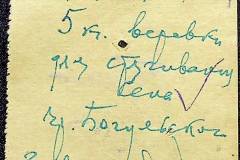 5 кг. веревки
для стягивания
сена
гр. Богульского